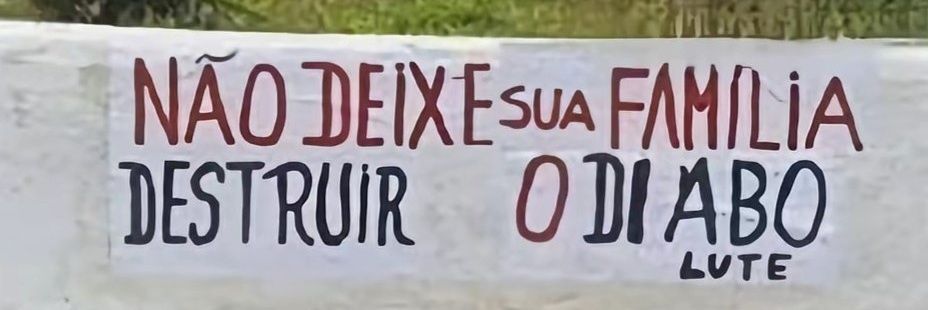 NÃO DEIXE SUA FAMÍLIA
DESTRUIR O DIABO
LUTE